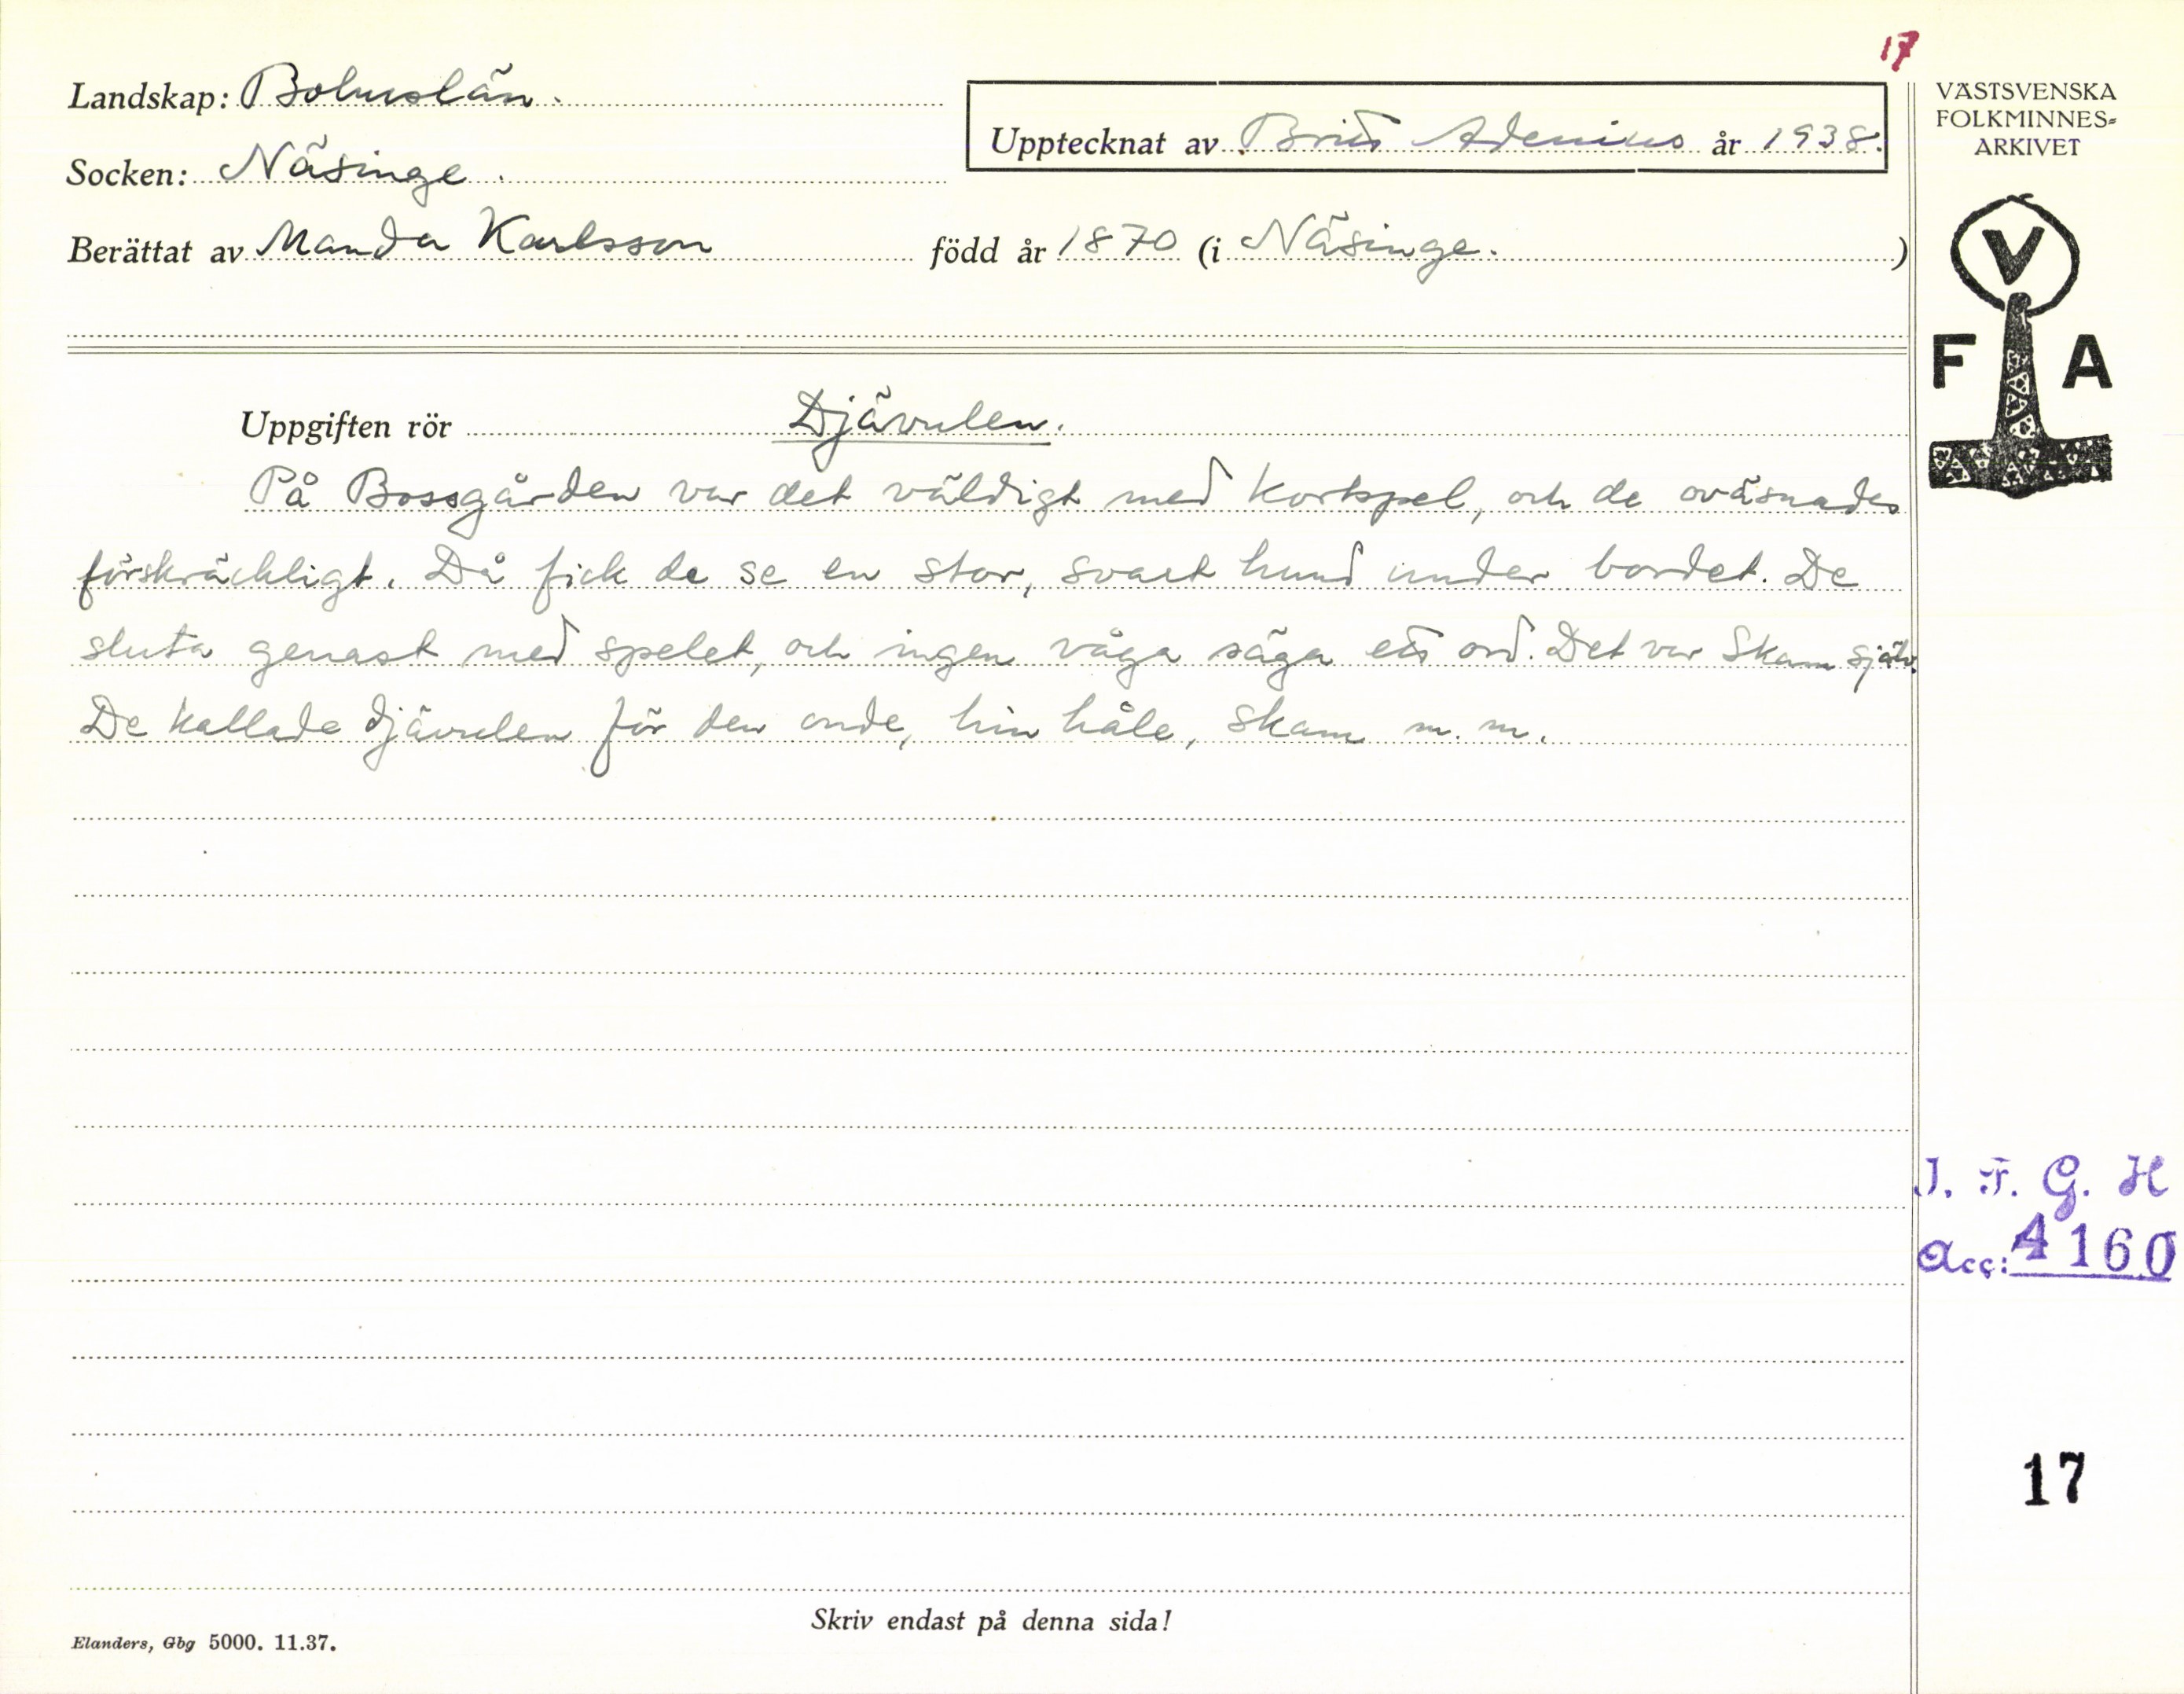 17
Landskap: Bohuslän.
Upptecknat av Britt Adenius år 1938.
Socken: Näsinge.
Berättat av Manda Karlsson född år 1870 (i Näsinge.)
VÄSTSVENSKA
FOLKMINNES=
ARKIVET
V
F A
Uppgiften rör Djävulen.
På Bossgården var det väldigt med kortspel, och de oväsnades
förskräckligt. Då fick de se en stor, svart hund under bordet. De
sluta genast med spelet, och ingen våga säga ett ord. Det var Skam själv.
De kallade djävulen för den onde, hin håle, skam m. m.
I. F. G. H
Acc: 4160
17
Skriv endast på denna sida!
Elanders, Gbg 5000. 11.37.